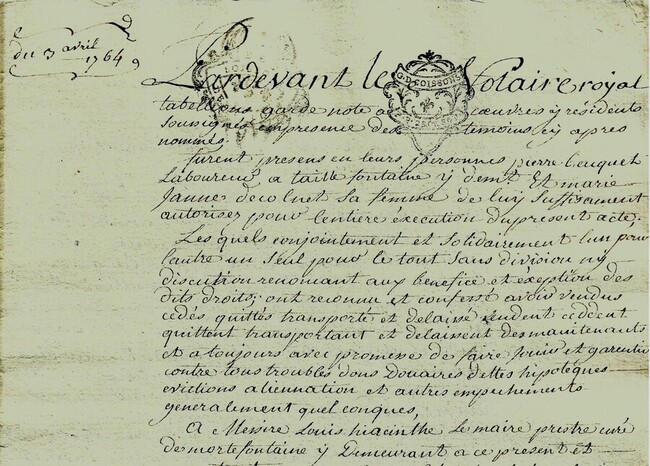 du 3 avril
1764
Pardevant le Notaire royal
tabellions garde note a coeuvres y résidents
soussignés en presence des temoins cy apres
nommés.
furent presens en leurs personnes pierre
Laboureur a taille fontaine y dem.t Et marie
Janne de sa femme de luy suffisament
autorisée pour lentiere éxécution du present acte,
Les quels conjointement et solidairement lun pour
lautre un seul pour le tout sans division ny
discution renonçant aux benefice et éxeption des
dits droits; ont reconnu et confessé avoir vendus
cédés quittés transporté et delaissé vendent cèddent
quittent transportant et delaissent des maintenants
et a toujours avec promesse de faire Jouir et garentir
contre tous troubles dons douaires dettes hipotèques
evictions aliennation et autres empechements
generalement quel conques,
A Messire Louis hiacinthe Le maire prestre curé
de mortefontaine y Demeurant a ce present et
G. D. SOISSONS